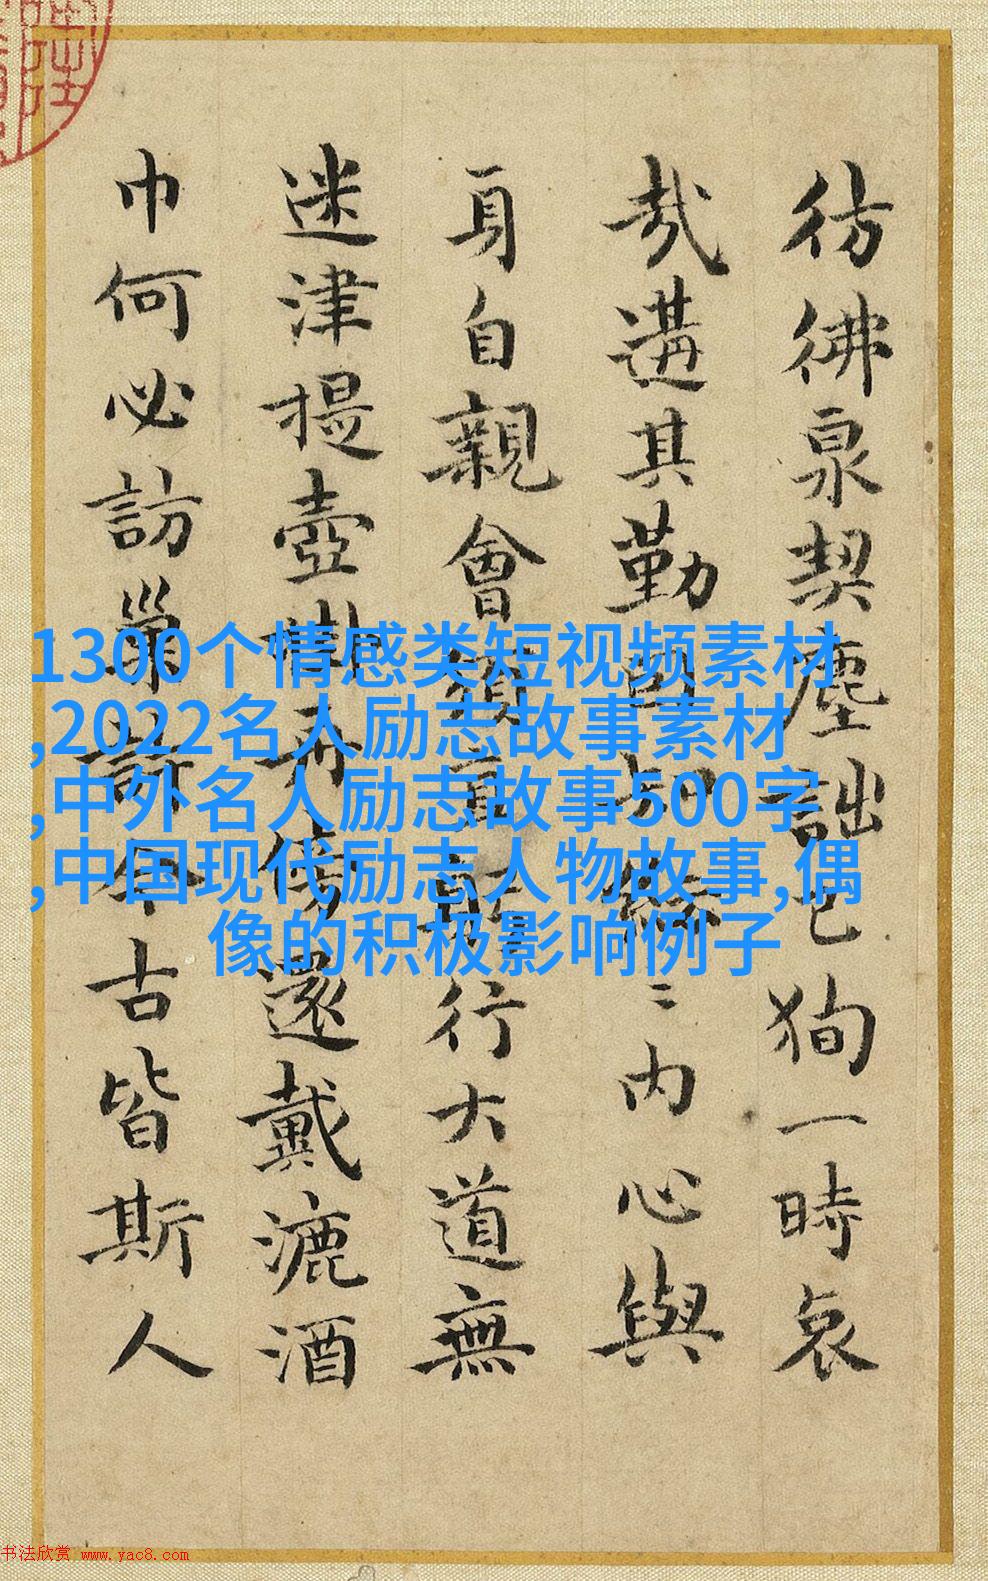 彷彿泉契塵詘已狥一時哀
哉遘其勤内心與
身自親會須直行大道無
迷津提壺掛傍還戴漉酒
巾何必訪巢許今古皆斯人
1300个情感类短视频素材
,2022名人励志故事素材
,中外名人励志故事500字
,中国现代励志人物故事,偶
像的积极影响例子
书法欣赏 www.yac8.com